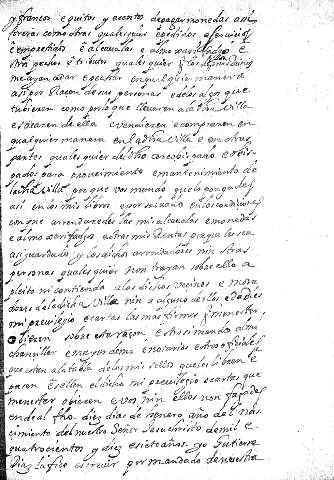 y francos e quitos y exentos de pagar monedas assi
foreras como otras qualesquier e pedidos e servicios
e emprestidos e alcavalas e almoxarifadgo e
otros pechos e tributos quales quier
me ayan a dar e pechar en qualquier manera
assi por Raçon de sus personas e de los algos que
tubieren como por lo que llevaren a la dha Villa
e sacaren de ella e vendieren e compraren en
qualquier manera en la dha Villa e en otras
partes quales quier del dho arçobispado e obis
pados para proveimiento e mantenimiento de
la dha Villa por que vos mando que lo pongades
assi en los mis libros e por salvado en las condiciones
con que arrendaredes las mis alcavalas e monedas
e almoxarifasgos e otras mis Rentas para que les sea
assi guardado y los dichos arrendadores nin otras
personas quales quier non trayan sobre ello a
pleito ni contienda a los dichos vecinos e mora
dores de la dicha Villa nin a alguno de ellos e dadles
mi previlegio e cartas las mas firmes que menester
obieren sobre esta raçon e esto mando al mi
chanciller e mayordomo e notarios e otros oficiales
que estan a la tabla de los mis sellos que les libren e
passen e sellen el dicho mi previlegio e cartas que
menester obieren e vos nin ellos non fagades
ende al fho diez dias de henero año del nas
cimiento del nuestro Señor Jesuchristo de mil e
quatrocientos y diez e siete años. yo Gutierre
Diaz la fice escrevir por mandado de nuestra